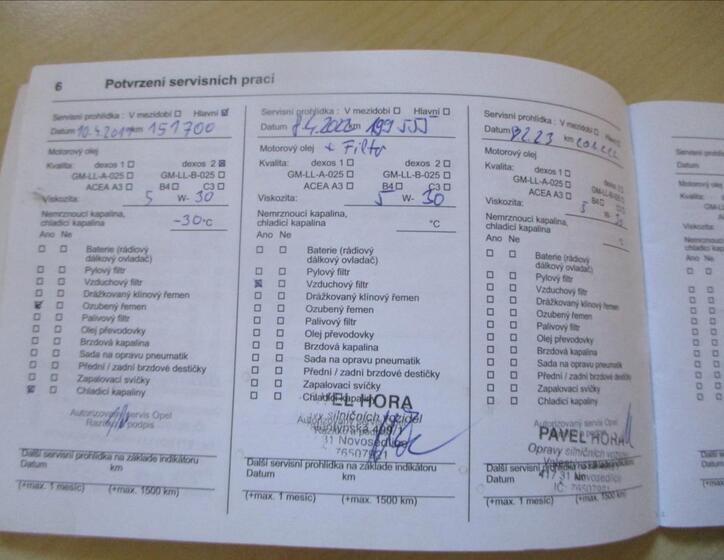 6 Potvrzení servisních prací
Servisní prohlídka : V mezidobí Hlavní
Datum 10.4.2019 km 151700
Motorový olej
Kvalita: dexos 1 dexos 2
GM-LL-A-025 GM-LL-B-025
ACEA A3 B4 C3
Viskozita: 5 W- 30
Nemrznoucí kapalina,
chladicí kapalina -30 °C
Ano Ne
Baterie (rádiový
dálkový ovladač)
Pylový filtr
Vzduchový filtr
Drážkovaný klínový řemen
Ozubený řemen
Palivový filtr
Olej převodovky
Brzdová kapalina
Sada na opravu pneumatik
Přední / zadní brzdové destičky
Zapalovací svíčky
Chladicí kapaliny
Autorizovaný servis Opel
Razítko / podpis
Další servisní prohlídka na základe indikátoru
Datum km
(+max. 1 mesíc) (+max. 1500 km)
Servisní prohlídka : V mezidobí Hlavní
Datum km
Motorový olej + Filtr
Kvalita: dexos 1 dexos 2
GM-LL-A-025 GM-LL-B-025
ACEA A3 B4 C3
Viskozita: 5 W- 30
Nemrznoucí kapalina,
chladicí kapalina °C
Ano Ne
Baterie (rádiový
dálkový ovladač)
Pylový filtr
Vzduchový filtr
Drážkovaný klínový řemen
Ozubený řemen
Palivový filtr
Olej převodovky
Brzdová kapalina
Sada na opravu pneumatik
Přední / zadní brzdové destičky
Zapalovací svíčky
Chladicí kapaliny
EL HORA
silničních vozidel
31 Novosedlice
76507921
Další servisní prohlídka na základe indikátoru
Datum km
(+max. 1 mesíc) (+max. 1500 km)
Servisní prohlídka : V mezidobí Hlavní
Datum km
Motorový olej
Kvalita: dexos 1 dexos 2
GM-LL-A-025 GM-LL-B-025
ACEA A3 B4 C3
Viskozita: 5 W- 30
Nemrznoucí kapalina,
chladicí kapalina °C
Ano Ne
Baterie (rádiový
dálkový ovladač)
Pylový filtr
Vzduchový filtr
Drážkovaný klínový řemen
Ozubený řemen
Palivový filtr
Olej převodovky
Brzdová kapalina
Sada na opravu pneumatik
Přední / zadní brzdové destičky
Zapalovací svíčky
Chladicí kapaliny
Autorizovaný servis Opel
PAVEL HORA
Opravy silničních vozidel
417 31 Novosedlice
IČ: 76507921
Další servisní prohlídka na základe indikátoru
Datum km
(+max. 1 mesíc) (+max. 1500 km)
Servisní
Datum
Motorový
Kvalita:
GM-LL
Viskozita:
Nemrznoucí
chladicí
Ano Ne